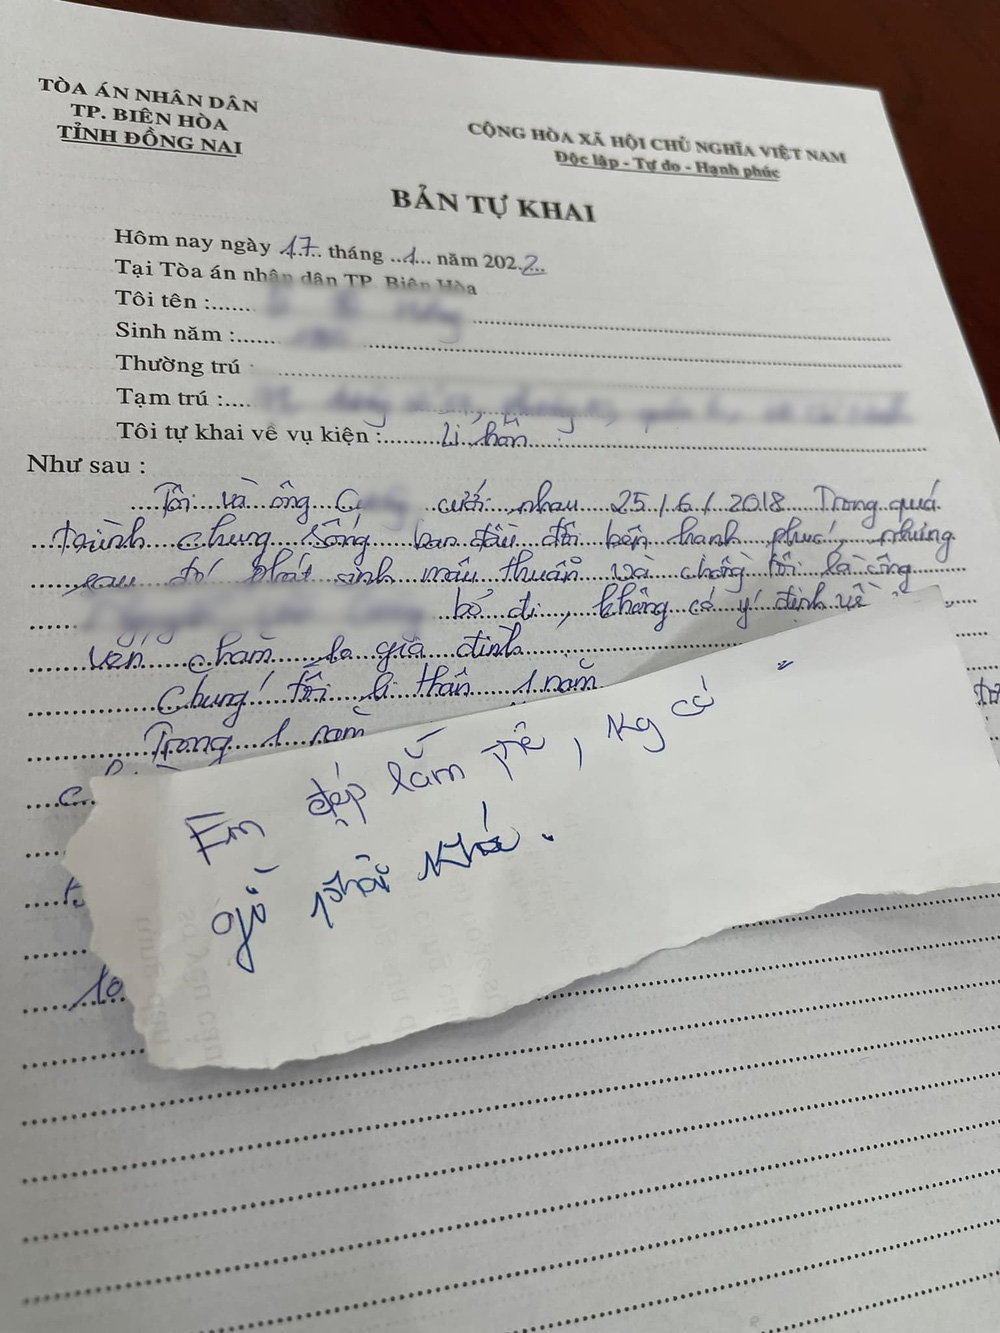 TÒA ÁN NHÂN DÂN
TP. BIÊN HÒA
TỈNH ĐỒNG NAI
CỘNG HÒA XÃ HỘI CHỦ NGHĨA VIỆT NAM
Độc lập - Tự do - Hạnh phúc
BẢN TỰ KHAI
Hôm nay ngày 17 tháng 1 năm 2022
Tại Tòa án nhân dân TP. Biên Hòa
Tôi tên :
Sinh năm :
Thường trú
Tạm trú :
Tôi tự khai về vụ kiện : Li hôn
Như sau :
Tôi và ông C cưới nhau 25/6/2018 Trong quá
trình chung sống ban đầu đôi bên hạnh phúc, nhưng
sau đó phát sinh mâu thuẫn và chồng tôi là ông
bỏ đi, không có ý định về
vén chăm lo gia đình
Chúng tôi li thân 1 năm
Trong 1 năm
Em đẹp lắm nè, kg có
gì phải khóc.